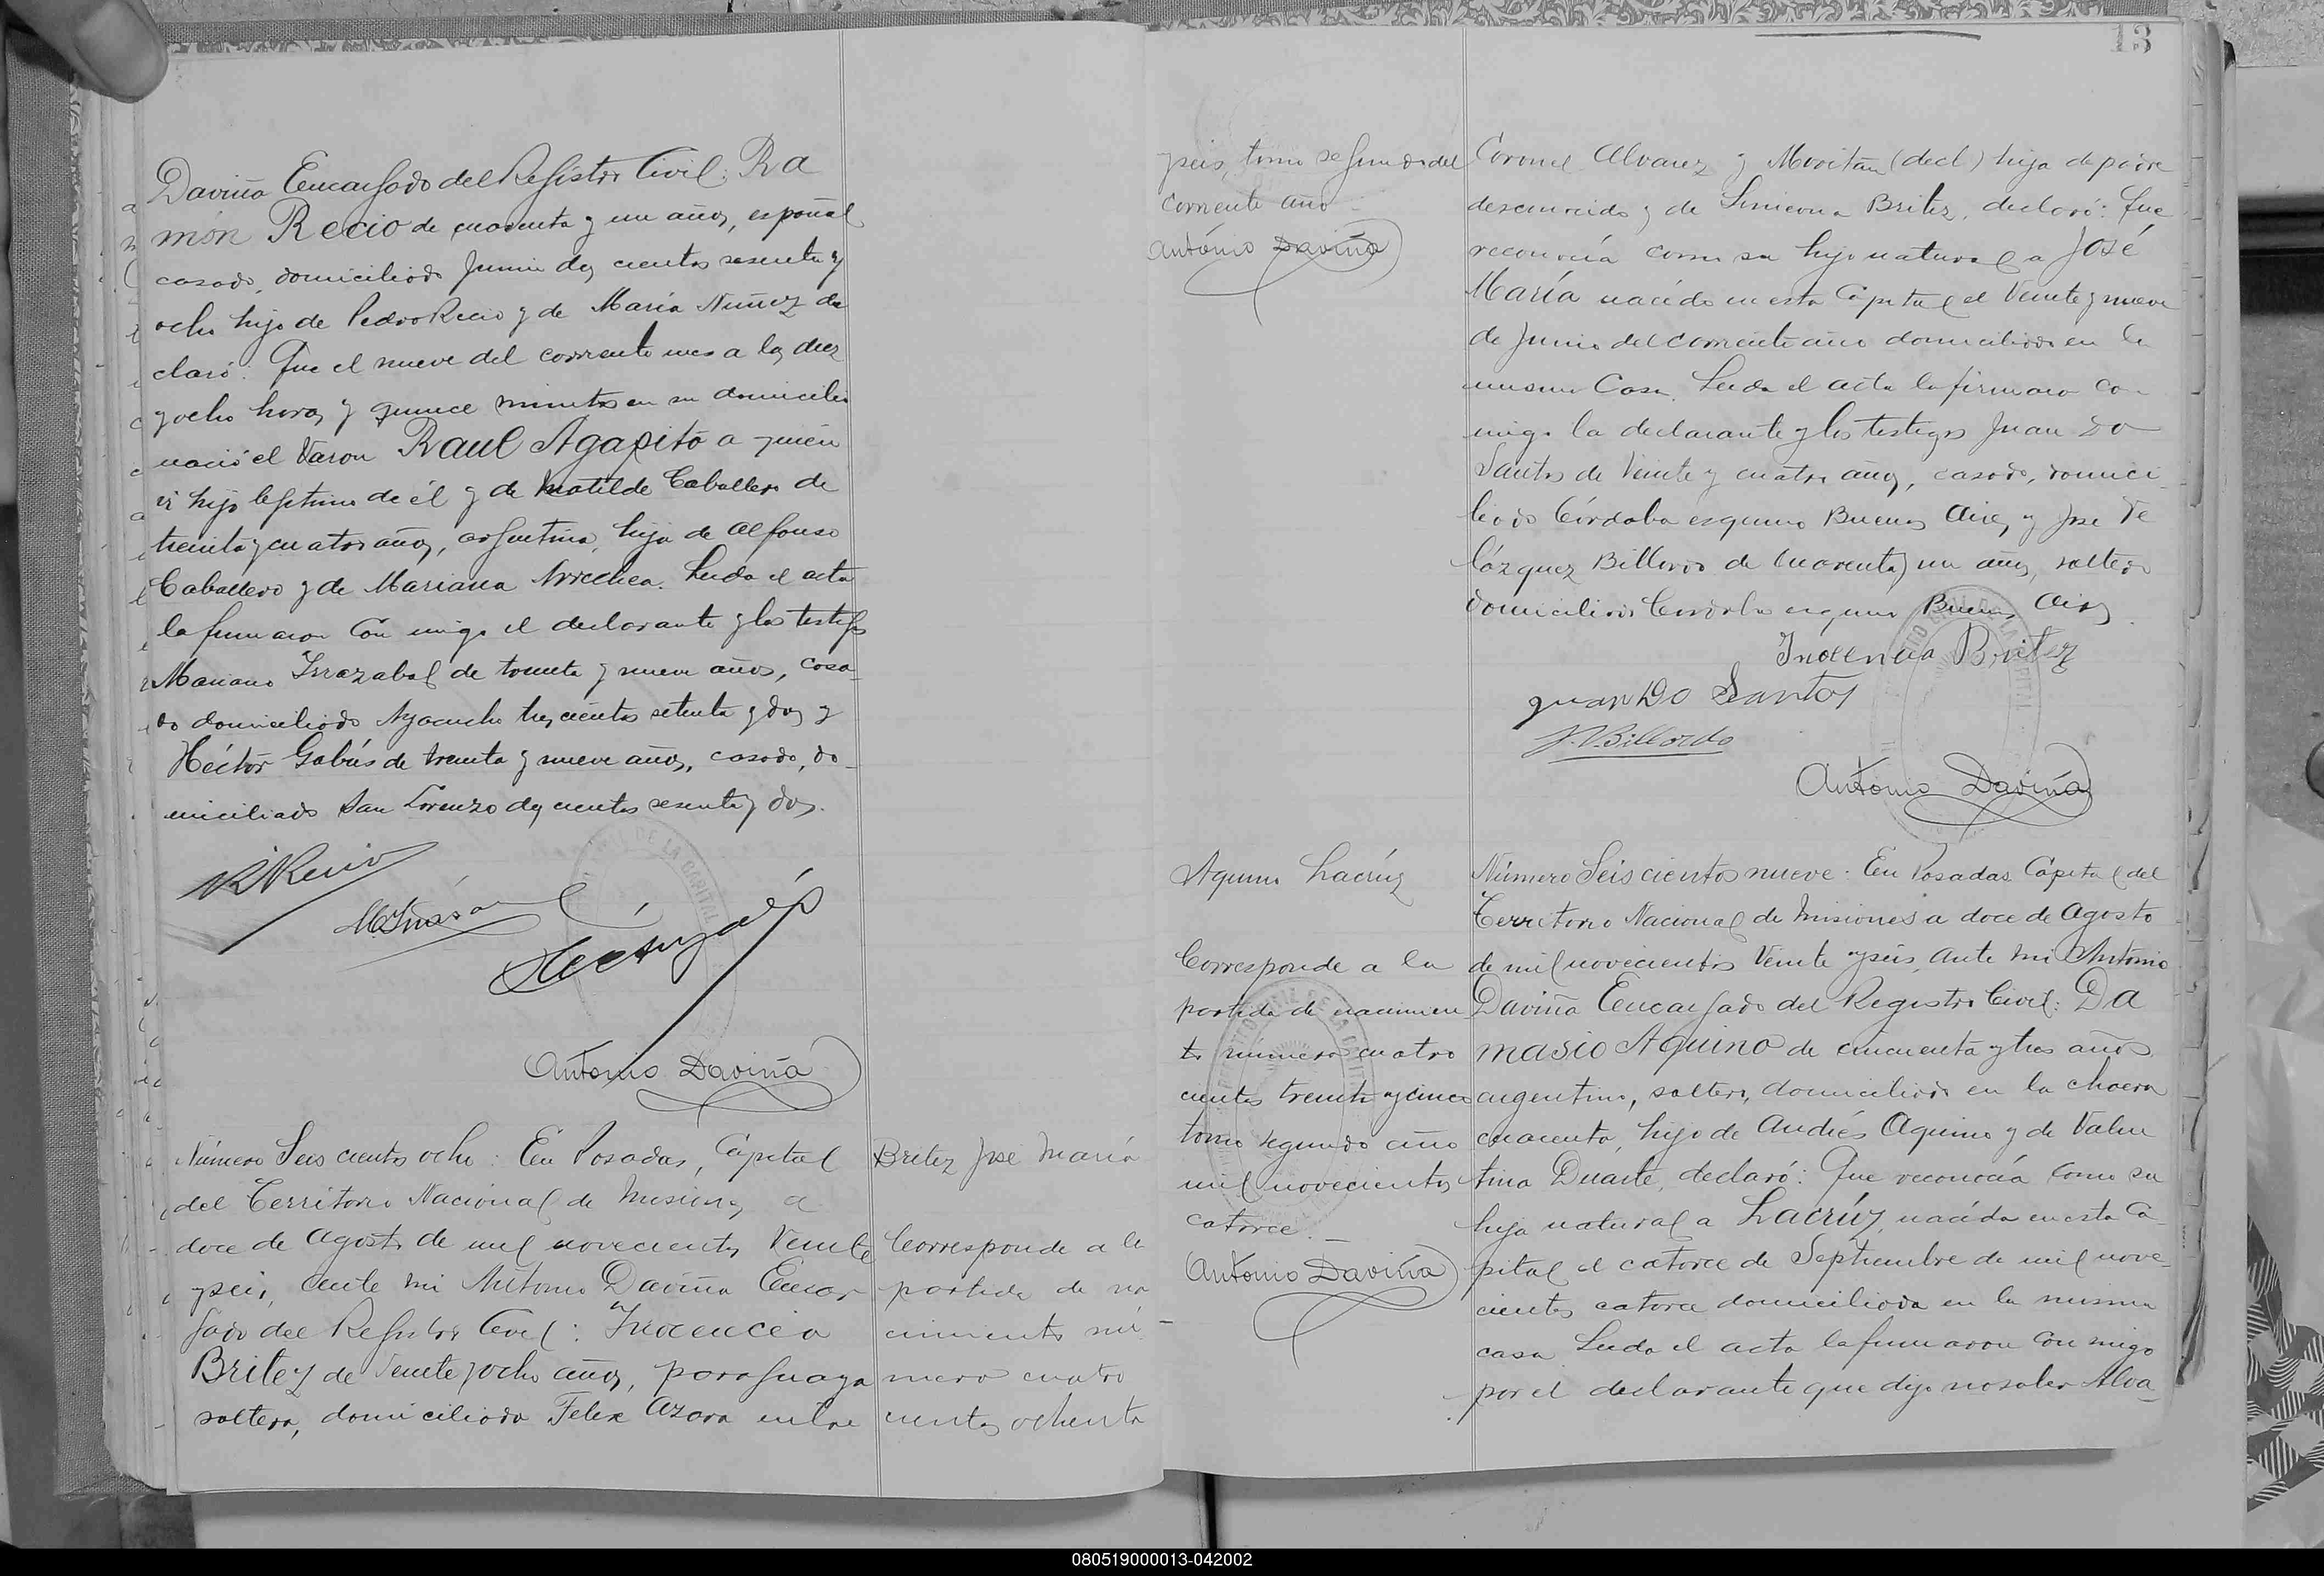 Daviña Encargado del Registro Civil: Ra
món Recio de cuarenta y un años, español
casado, domiciliado Junin dos cientos sesenta y
ocho hijo de Pedro Recio y de María Nuñez de
claró: Que el nueve del corriente mes a las diez
y ocho horas y quince minutos en su domicilio
nació el varon Raul Agapito a quién
vi hijo legitimo de él y de Matilde Caballero de
treinta y cuatro años, argentina, hija de Alfonso
Caballero y de Mariana Arrechea. Leida el acta
la firmaron con migo el declarante y los testigos
Mariano Irrazabal de treinta y nueve años, casa
do domiciliado Ayacucho tres cientos setenta y dos y
Héctor Gabás de treinta y nueve años, casado, do
miciliado San Lorenzo dos cientos sesenta y dos.
R Recio
Antonio Daviña
Número Seis cientos ocho: En Posadas, Capital
del Territorio Nacional de Misiones a
doce de Agosto de mil novecientos Veinte
y seis, ante mi Antonio Daviña Encar
gado del Registro Civil: Inocencia
Britez de Veinte y ocho años, paraguaya
soltera, domiciliada Felix Azara entre
Britez José María
Corresponde a la
partida de na
cimiento nú-
mero cuatro
cientos ochenta
13
y seis, tomo segundo del
corriente año
Antonio Daviña
Coronel Alvarez y Moritán (decl) hija de padre
desconocido y de Simeona Britez, declaró: Que
reconocía como su hijo natural a José
María nacido en esta Capital el Veinte y nueve
de Junio del corriente año domiciliado en la
misma Casa. Leida el acta la firmaron con
migo la declarante y los testigos Juan Do
Santos de Veinte y cuatro años, casado, domici
liado Córdoba esquina Buenos Aires y José Ve
lázquez Billordo de cuarenta y un años, soltero
domiciliado Cordoba esquina Buenos Aires.
Inocencia Britez
Juan Do Santos
J. V. Billordo
Antonio Daviña
Aquino Lacrúz
Corresponde a la
partida de nacimien
to número cuatro
cientos treinta y cinco
tomo segundo año
mil novecientos
catorce.
Antonio Daviña
Número Seis cientos nueve: En Posadas Capital del
Territorio Nacional de Misiones a doce de Agosto
de mil novecientos Veinte y seis, ante mi Antonio
Daviña Encargado del Registro Civil: Da
masio Aquino de cincuenta y tres años
argentino, soltero, domiciliado en la chacra
cuarenta, hijo de Andrés Aquino y de Valen
tina Duarte, declaró: Que reconocía como su
hija natural a Lacrúz, nacida en esta Ca
pital el catorce de Septiembre de mil nove
cientos catorce domiciliada en la misma
casa Leida el acta la firmaron con migo
por el declarante que dijo no saber Alva
080519000013-042002